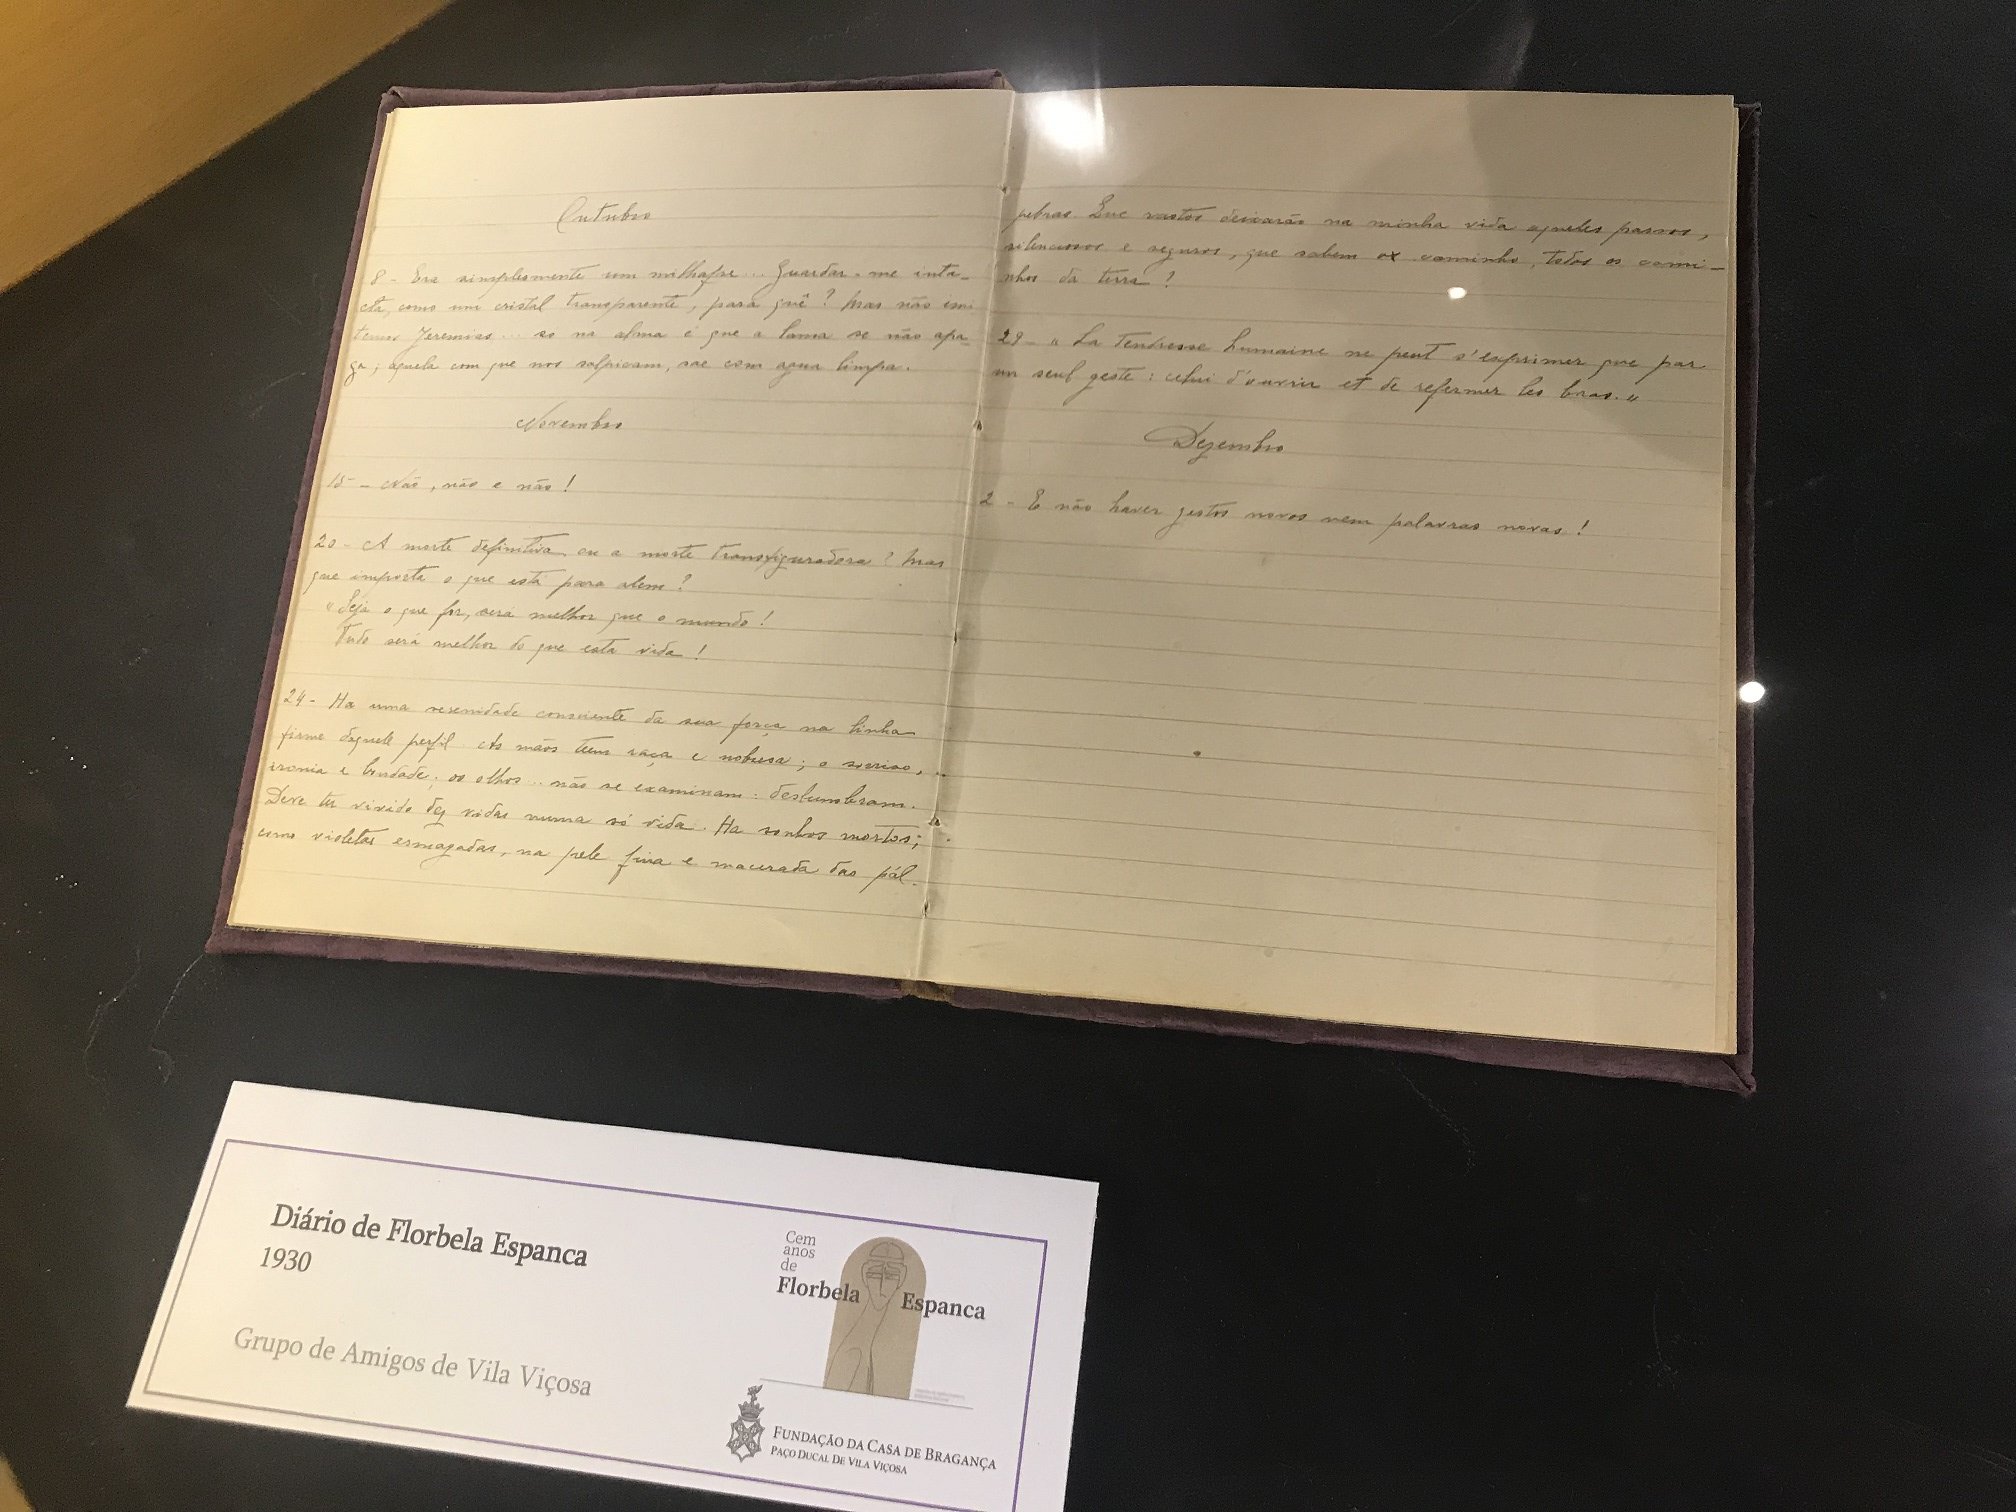 Outubro
8 - Era simplesmente um milhafre... Guardar-me inta-
cta, como um cristal transparente, para quê? Mas não imi
temos Jeremias... so na alma é que a lama se não apa-
ga; aquela com que nos salpicam, sae com agua limpa.
Novembro
15 - Não, não e não!
20 - A morte definitiva ou a morte transfiguradora? Mas
que importa o que está para alem?
"Seja o que for, será melhor que o mundo!
Tudo será melhor do que esta vida!
24 - Ha uma serenidade consciente da sua força na linha
firme daquele perfil. As mãos teem raça e nobresa; o sorriso,
ironia e bondade; os olhos... não se examinam: deslumbram.
Deve ter vivido dez vidas numa só vida. Ha sonhos mortos;
como violetas esmagadas, na pele fina e macerada das pál-
pebras. Que rastos deixarão na minha vida aqueles passos,
silenciosos e seguros, que sabem o caminho, todos os cami-
nhos da terra?
29 - "La tendresse humaine ne peut s'exprimer que par
un seul geste: celui d'ouvrir et de refermer les bras."
Dezembro
2 - E não haver gestos novos nem palavras novas!
Diário de Florbela Espanca
1930
Grupo de Amigos de Vila Viçosa
Cem
anos
de
Florbela Espanca
FUNDAÇÃO DA CASA DE BRAGANÇA
PAÇO DUCAL DE VILA VIÇOSA